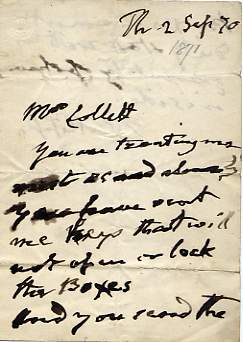 Th. 2 Sep 70
1871
Mrs Collett
You are treating me
you have sent
me Keys that will
not open or lock
the Boxes
And you send the